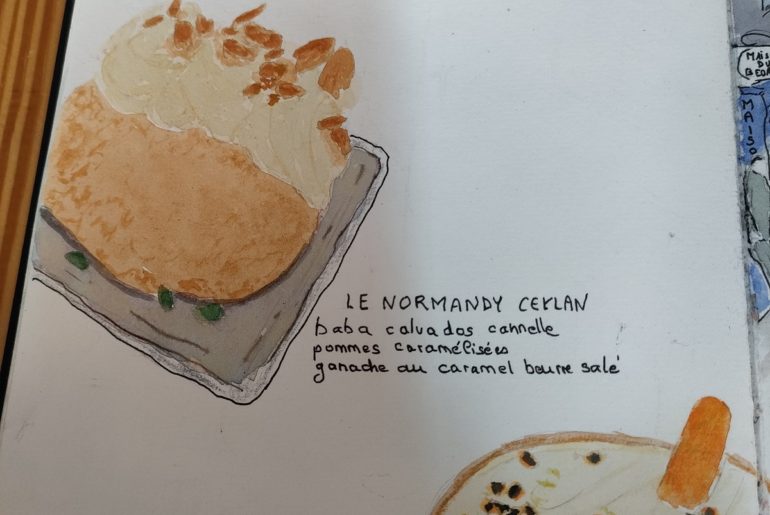 LE NORMANDY CEYLAN
baba calvados cannelle
pommes caramélisées
ganache au caramel beurre salé
MAIS
DU
BEDA
MAISO